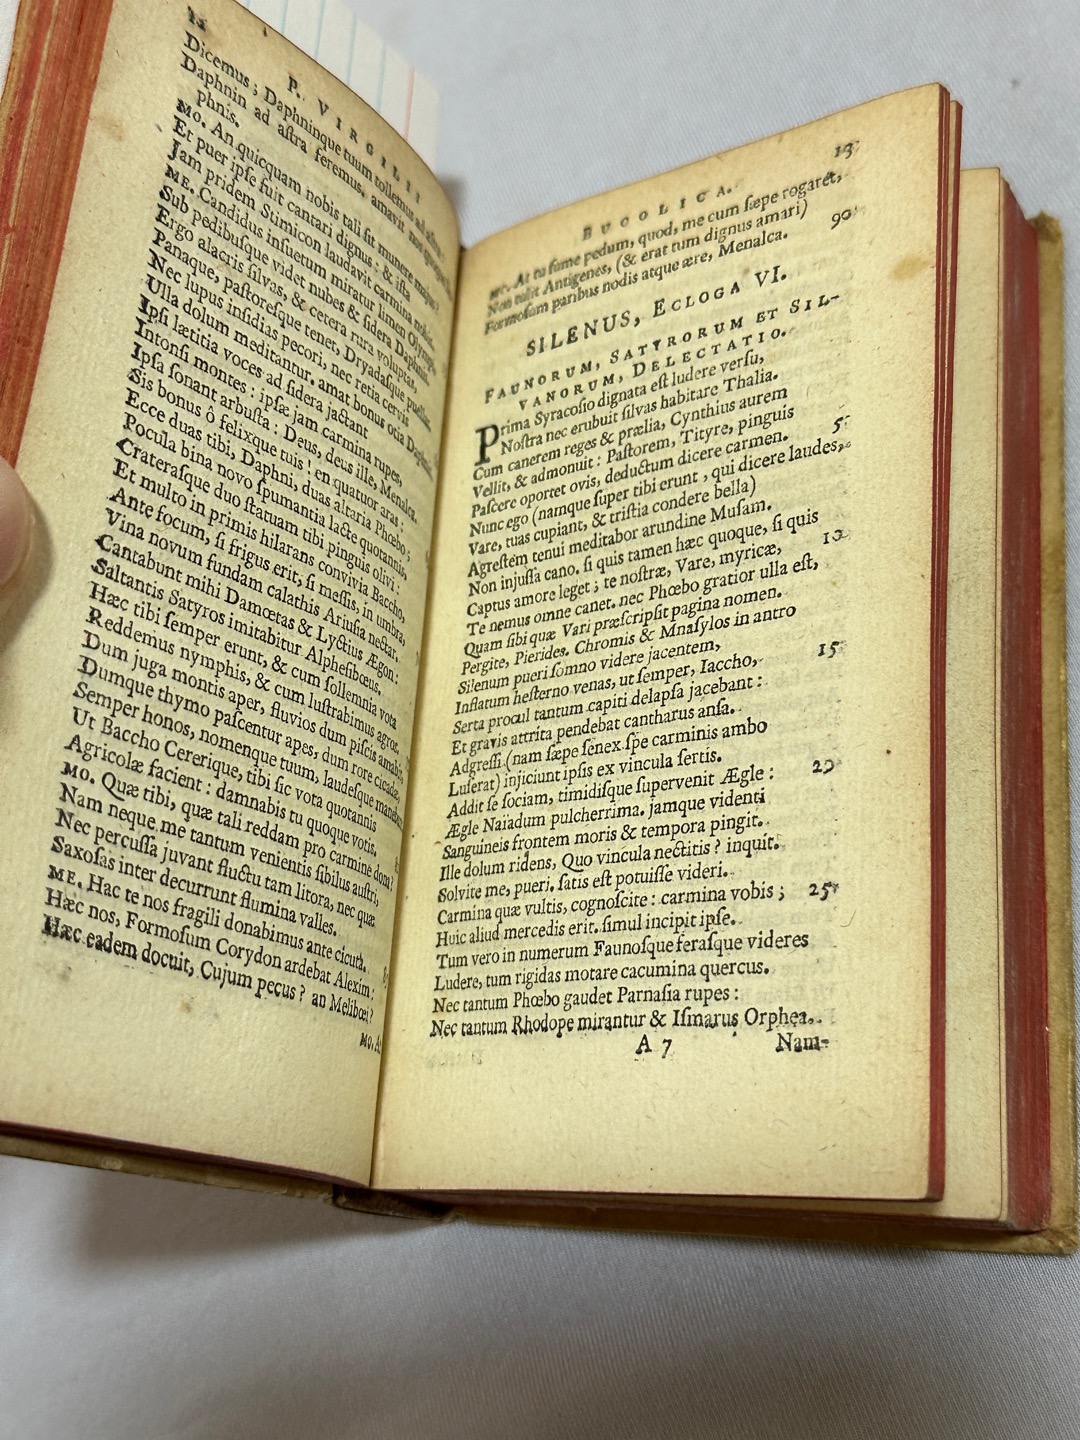 12
P. VIRGILII
Dicemus; Daphninque tuum tollemus ad astra:
Daphnin ad aſtra feremus, amavit nos quoque
phnis.
MO. An quicquam nobis tali ſit munere majus?
Et puer ipſe fuit cantari dignus: & iſta
Jam pridem Stimicon laudavit carmina nobis.
ME. Candidus inſuetum miratur limen Olympi,
Sub pedibuſque videt nubes & ſidera Daphnis.
Ergo alacris ſilvas, & cetera rura voluptas,
Panaque, paſtoreſque tenet, Dryadaſque puellas.
Nec lupus inſidias pecori, nec retia cervis
Ulla dolum meditantur. amat bonus otia Daphnis.
Ipſi lætitia voces ad ſidera jactant
Intonſi montes: ipſæ jam carmina rupes,
Ipſa ſonant arbuſta: Deus, deus ille, Menalca.
Sis bonus ô felixque tuis! en quatuor aras:
Ecce duas tibi, Daphni, duas altaria Phœbo;
Pocula bina novo ſpumantia lacte quotannis,
Crateraſque duo ſtatuam tibi pinguis olivi:
Et multo in primis hilarans convivia Baccho,
Ante focum, ſi frigus erit, ſi meſſis, in umbra,
Vina novum fundam calathis Ariuſia nectar.
Cantabunt mihi Damœtas & Lyctius Ægon:
Saltantis Satyros imitabitur Alpheſibœus.
Hæc tibi ſemper erunt, & cum ſollemnia vota
Reddemus nymphis, & cum luſtrabimus agros.
Dum juga montis aper, fluvios dum piſcis amabit;
Dumque thymo paſcentur apes, dum rore cicadæ,
Semper honos, nomenque tuum, laudeſque manebunt
Ut Baccho Cererique, tibi ſic vota quotannis
Agricolæ facient: damnabis tu quoque votis.
MO. Quæ tibi, quæ tali reddam pro carmine dona?
Nam neque me tantum venientis ſibilus auſtri,
Nec percuſſa juvant fluctu tam litora, nec quæ
Saxoſas inter decurrunt flumina valles.
ME. Hac te nos fragili donabimus ante cicuta.
Hæc nos, Formoſum Corydon ardebat Alexim:
Hæc eadem docuit, Cujum pecus? an Melibœi?
MO. At
BUCOLICA. 13
MO. At tu ſume pedum, quod, me cum ſæpe rogaret,
Non tulit Antigenes, (& erat tum dignus amari) 90
Formoſum paribus nodis atque ære, Menalca.
SILENUS, ECLOGA VI.
FAUNORUM, SATYRORUM ET SIL-
VANORUM, DELECTATIO.
Prima Syracoſio dignata eſt ludere verſu,
Noſtra nec erubuit ſilvas habitare Thalia.
Cum canerem reges & prælia, Cynthius aurem
Vellit, & admonuit: Paſtorem, Tityre, pinguis
Paſcere oportet ovis, deductum dicere carmen. 5
Nunc ego (namque ſuper tibi erunt, qui dicere laudes,
Vare, tuas cupiant, & triſtia condere bella)
Agreſtem tenui meditabor arundine Muſam.
Non injuſſa cano. ſi quis tamen hæc quoque, ſi quis
Captus amore leget; te noſtræ, Vare, myricæ, 10
Te nemus omne canet. nec Phœbo gratior ulla eſt,
Quam ſibi quæ Vari præſcripſit pagina nomen.
Pergite, Pierides. Chromis & Mnaſylos in antro
Silenum pueri ſomno videre jacentem,
Inflatum heſterno venas, ut ſemper, Iaccho, 15
Serta procul tantum capiti delapſa jacebant:
Et gravis attrita pendebat cantharus anſa.
Adgreſſi (nam ſæpe ſenex ſpe carminis ambo
Luſerat) injiciunt ipſis ex vincula ſertis.
Addit ſe ſociam, timidiſque ſupervenit Ægle: 20
Ægle Naiadum pulcherrima. jamque videnti
Sanguineis frontem moris & tempora pingit.
Ille dolum ridens, Quo vincula nectitis? inquit.
Solvite me, pueri. ſatis eſt potuiſſe videri.
Carmina quæ vultis, cognoſcite: carmina vobis; 25
Huic aliud mercedis erit. ſimul incipit ipſe.
Tum vero in numerum Faunoſque feraſque videres
Ludere, tum rigidas motare cacumina quercus.
Nec tantum Phœbo gaudet Parnaſia rupes:
Nec tantum Rhodope mirantur & Iſmarus Orphea.
A 7 Nam-